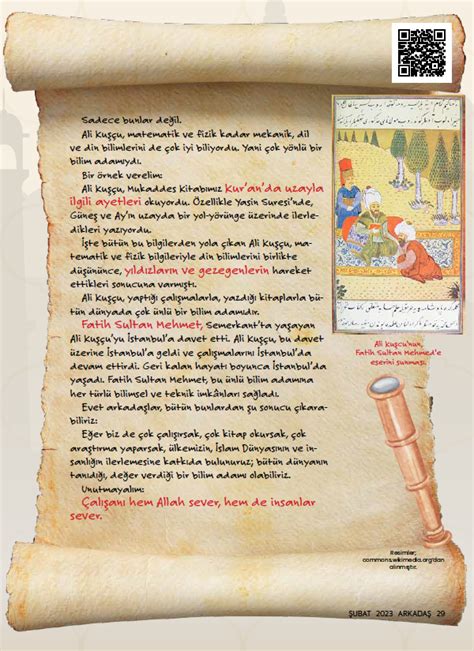 Sadece bunlar değil.
Ali Kuşçu, matematik ve fizik kadar mekanik, dil
ve din bilimlerini de çok iyi biliyordu. Yani çok yönlü bir
bilim adamıydı.
Bir örnek verelim:
Ali Kuşçu, Mukaddes Kitabımız Kur'an'da uzayla
ilgili ayetleri okuyordu. Özellikle Yasin Suresi'nde,
Güneş ve Ay'ın uzayda bir yol-yörünge üzerinde ilerle-
dikleri yazıyordu.
İşte bütün bu bilgilerden yola çıkan Ali Kuşçu, ma-
tematik ve fizik bilgileriyle din bilimlerini birlikte
düşününce, yıldızların ve gezegenlerin hareket
ettikleri sonucuna varmıştı.
Ali Kuşçu, yaptığı çalışmalarla, yazdığı kitaplarla bü-
tün dünyada çok ünlü bir bilim adamıydı.
Fatih Sultan Mehmet, Semerkant'ta yaşayan
Ali Kuşçu'yu İstanbul'a davet etti. Ali Kuşçu, bu davet
üzerine İstanbul'a geldi ve çalışmalarını İstanbul'da
devam ettirdi. Geri kalan hayatı boyunca İstanbul'da
yaşadı. Fatih Sultan Mehmet, bu ünlü bilim adamına
her türlü bilimsel ve teknik imkânları sağladı.
Evet arkadaşlar, bütün bunlardan şu sonucu çıkara-
biliriz:
Eğer biz de çok çalışırsak, çok kitap okursak, çok
araştırma yaparsak, ülkemizin, İslam Dünyasının ve in-
sanlığın ilerlemesine katkıda bulunuruz; bütün dünyanın
tanıdığı, değer verdiği bir bilim adamı olabiliriz.
Unutmayalım:
Çalışanı hem Allah sever, hem de insanlar
sever.
Ali Kuşcu'nun,
Fatih Sultan Mehmed'e
eserini sunması.
Resimler;
commons.wikimedia.org'dan
alınmıştır.
ŞUBAT 2023 ARKADAŞ 29